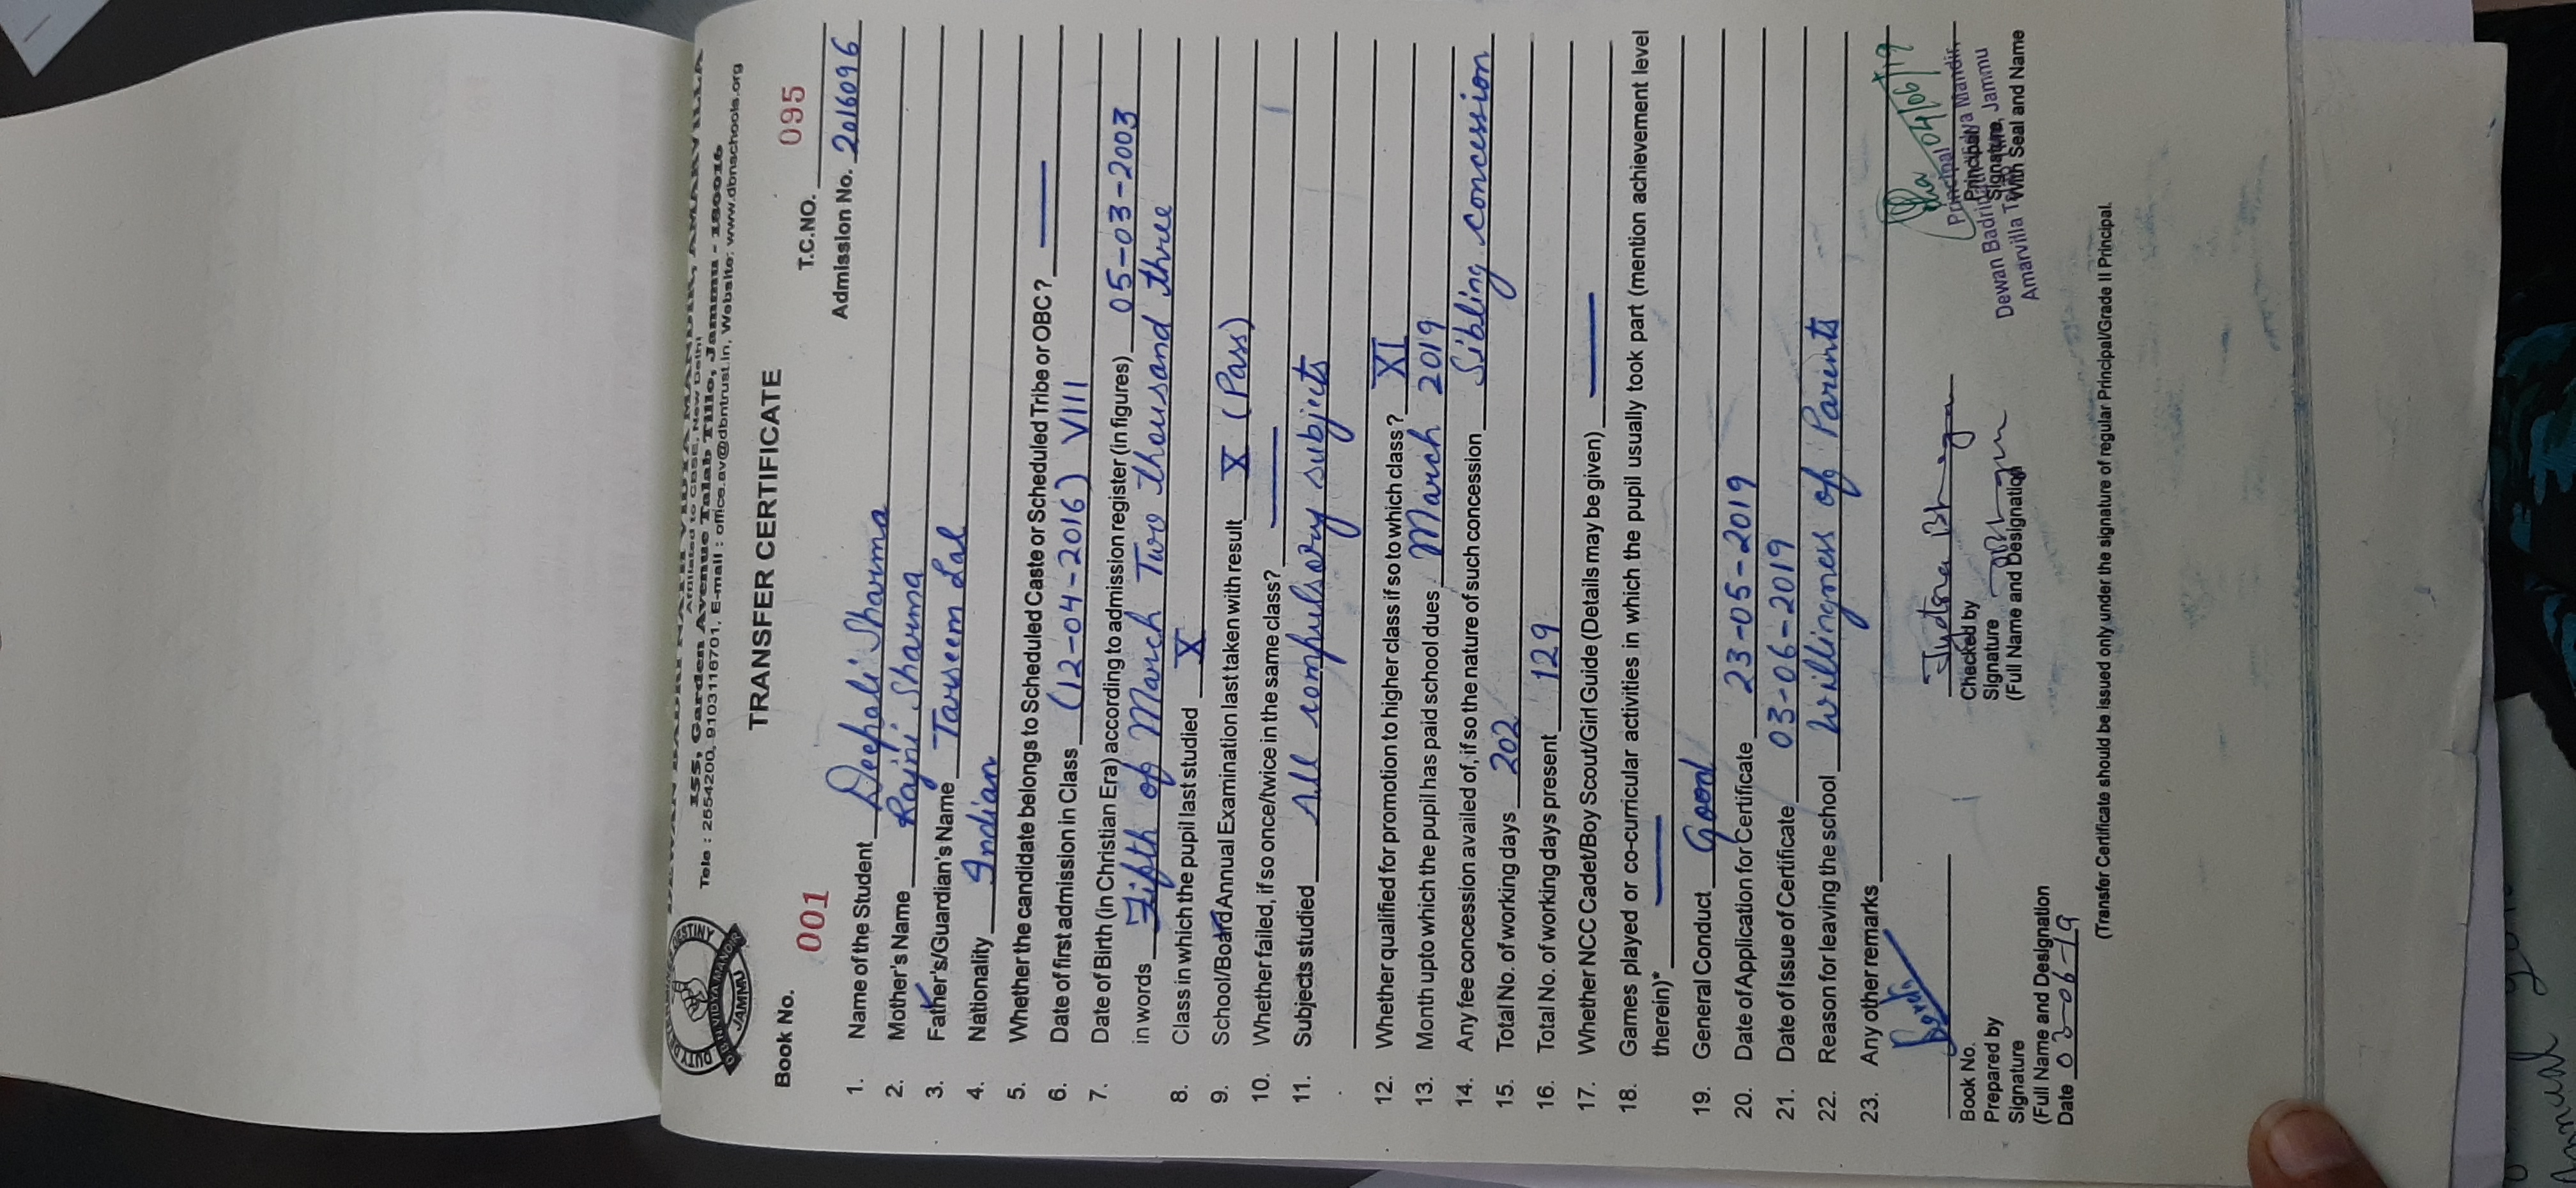 DEWAN BADRI NATH VIDYA MANDIR, AMARVILLA
Affiliated to CBSE, New Delhi
155, Garden Avenue Talab Tillo, Jammu - 180016
Tele : 2554200, 9103116701, E-mail : office.av@dbntrust.in, Website: www.dbnschools.org
JAMMU
TRANSFER CERTIFICATE
Book No. 001 T.C.NO. 095
Admission No. 2016096
1. Name of the Student Deepali Sharma
2. Mother's Name Rajni Sharma
3. Father's/Guardian's Name Tarseem Lal
4. Nationality Indian
5. Whether the candidate belongs to Scheduled Caste or Scheduled Tribe or OBC? —
6. Date of first admission in Class (12-04-2016) VIII
7. Date of Birth (in Christian Era) according to admission register (in figures) 05-03-2003
in words Fifth of March Two thousand three
8. Class in which the pupil last studied X
9. School/Board Annual Examination last taken with result X (Pass)
10. Whether failed, if so once/twice in the same class? —
11. Subjects studied All compulsory subjects
12. Whether qualified for promotion to higher class if so to which class? XI
13. Month upto which the pupil has paid school dues March 2019
14. Any fee concession availed of, if so the nature of such concession Sibling concession
15. Total No. of working days 202
16. Total No. of working days present 129
17. Whether NCC Cadet/Boy Scout/Girl Guide (Details may be given) —
18. Games played or co-curricular activities in which the pupil usually took part (mention achievement level
therein)* —
19. General Conduct Good
20. Date of Application for Certificate 23-05-2019
21. Date of Issue of Certificate 03-06-2019
22. Reason for leaving the school Willingness of Parents
23. Any other remarks
04/06/19
Book No.
Prepared by
Signature
(Full Name and Designation
Date 03-06-19
Jyotsna
Checked by
Signature
(Full Name and Designation
Principal
Signature
With Seal and Name
Principal
Dewan Badri Nath Vidya Mandir,
Amarvilla Talab Tillo, Jammu
(Transfer Certificate should be issued only under the signature of regular Principal/Grade II Principal.
Annual